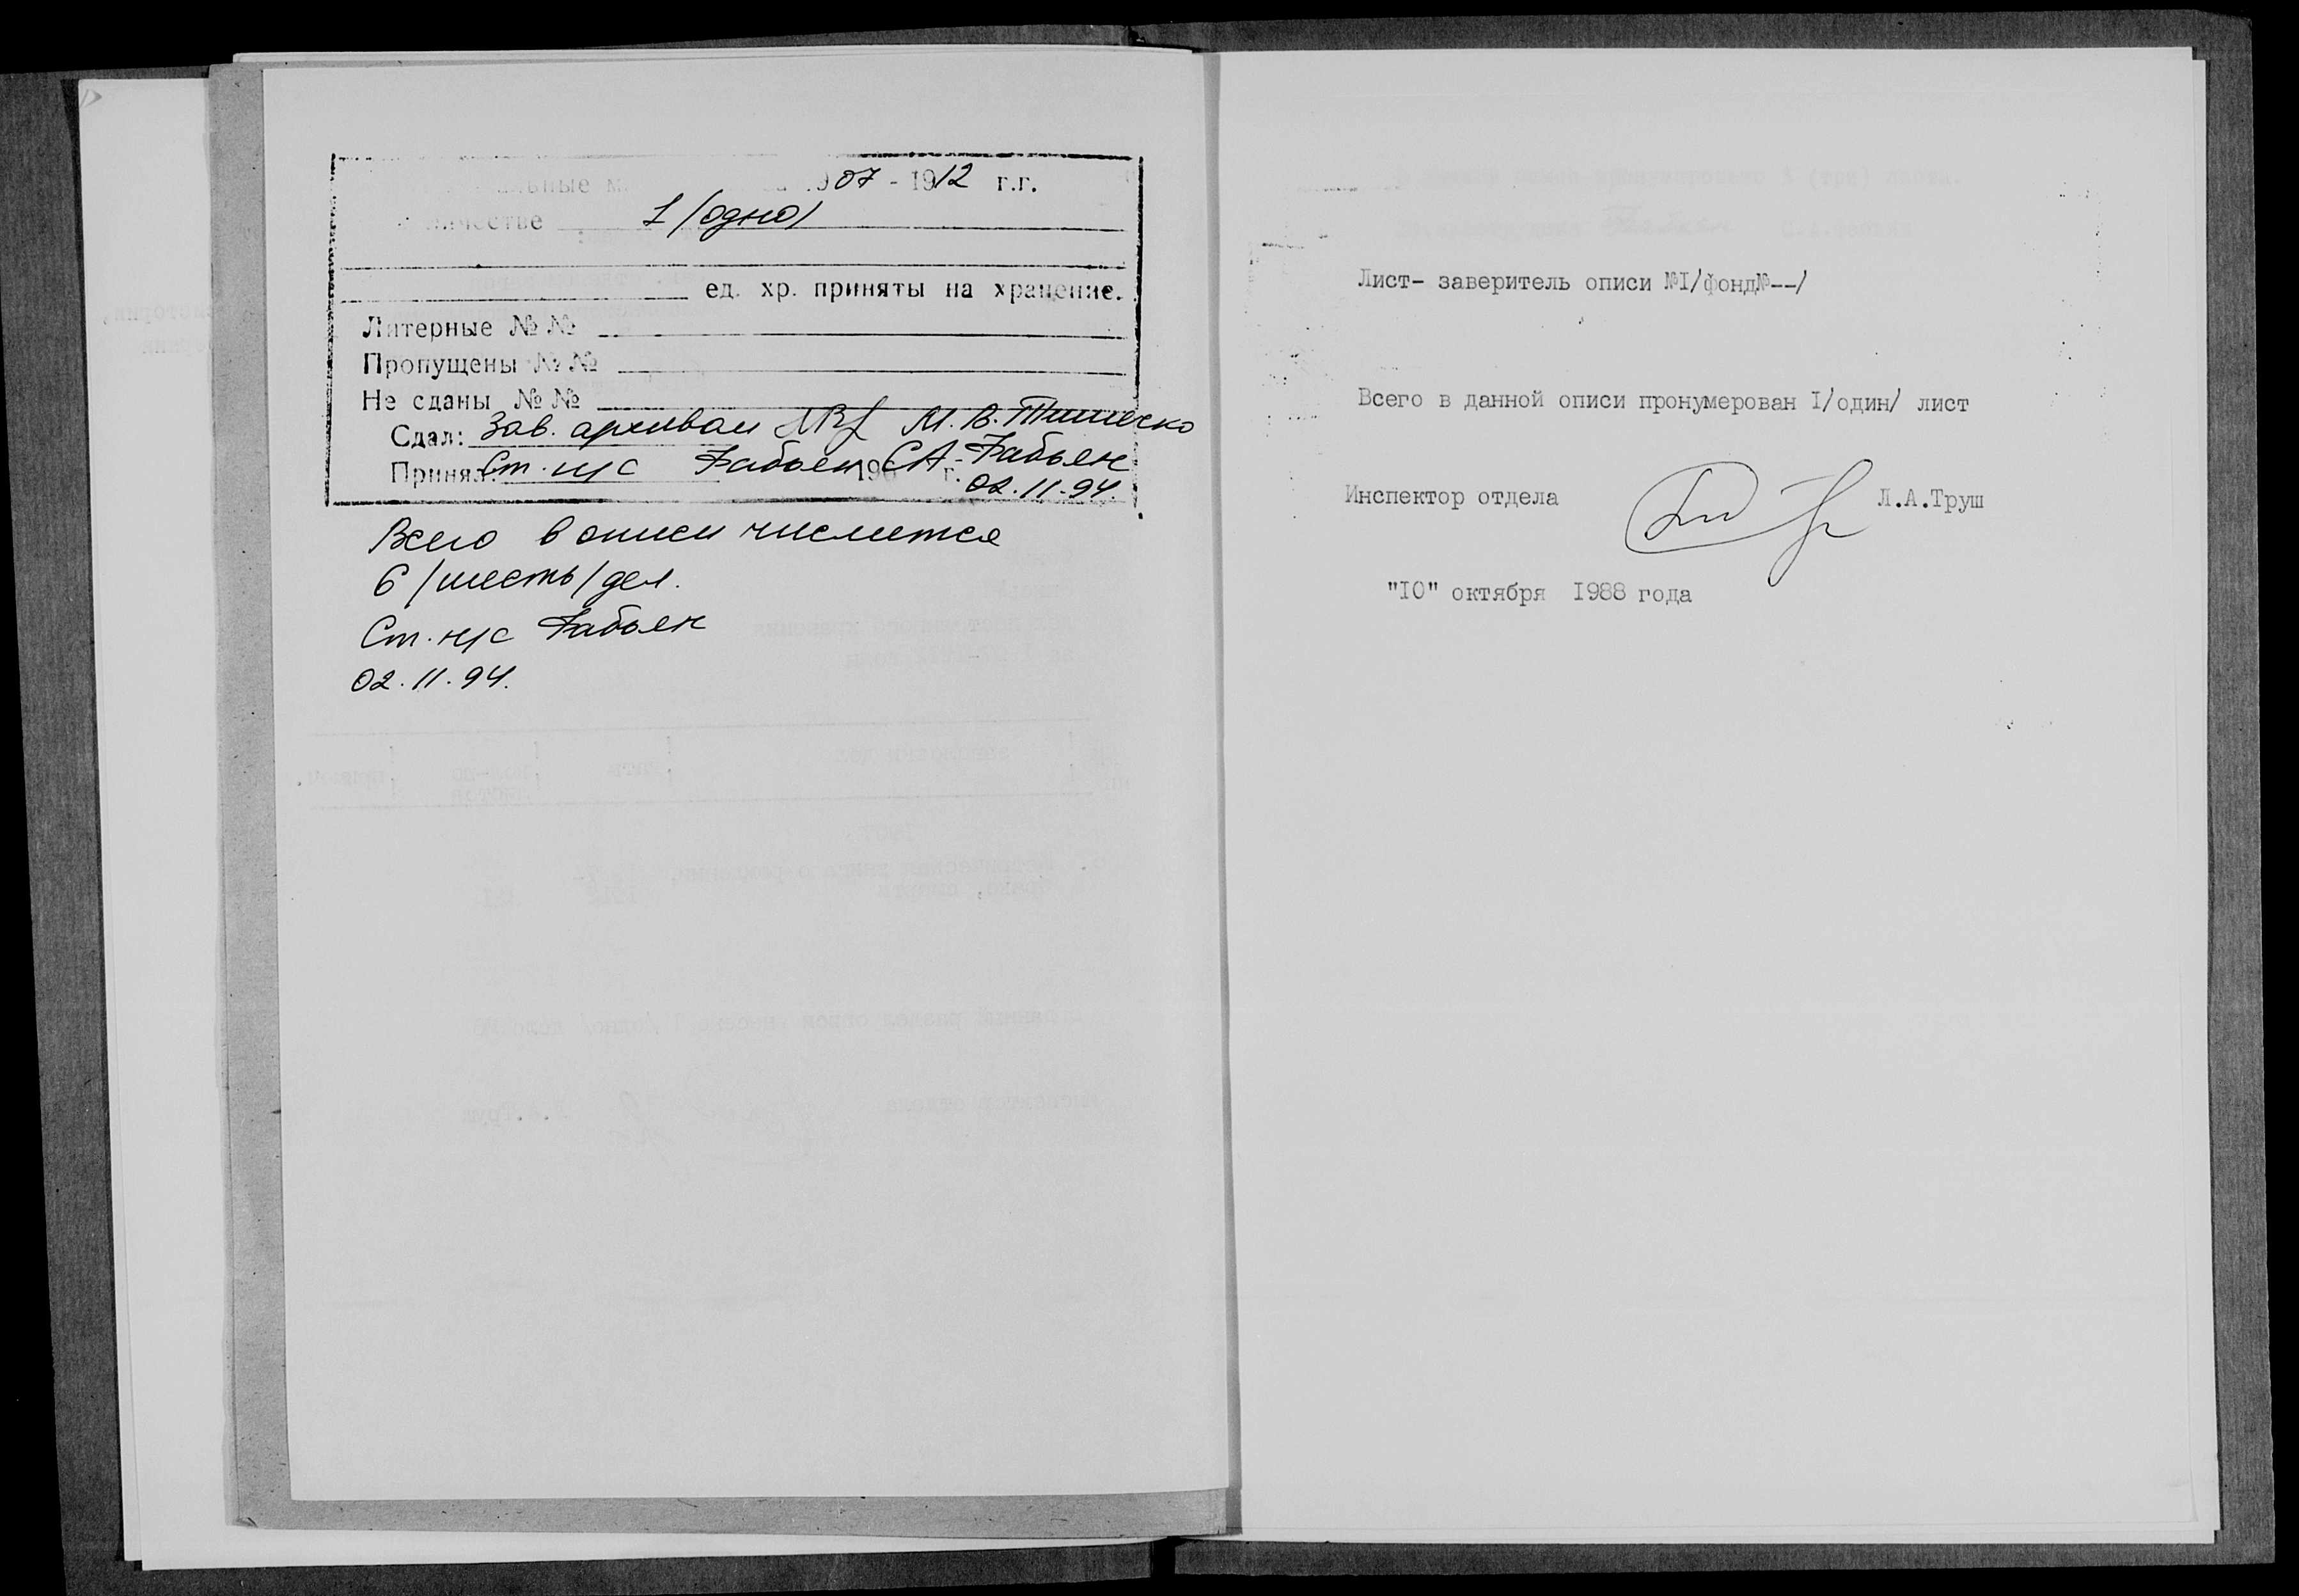 1907 - 1912 г.г.
1 (одно)
ед. хр. приняты на хранение.
Литерные №№
Пропущены №№
Не сданы №№
Сдал: Зав. архивом М.В.
Принял: Ст. н/с Бабьяк 196 г. С.А. Бабьяк
02.11.94.
Всего в описи числится
6 /шесть/ дел.
Ст. н/с Бабьяк
02.11.94.
Лист- заверитель описи №I/фонд№--/
Всего в данной описи пронумерован I/один/ лист
Инспектор отдела Л.А.Труш
"IO" октября I988 года